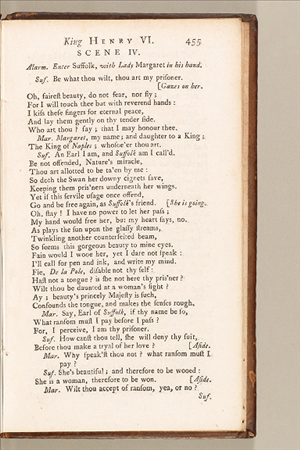 King HENRY VI. 455
SCENE IV.
Alarm. Enter Suffolk, with Lady Margaret in his hand.
Suf. Be what thou wilt, thou art my prisoner.
[Gazes on her.
Oh, fairest beauty, do not fear, nor fly;
For I will touch thee but with reverend hands:
I kiss these fingers for eternal peace,
And lay them gently on thy tender side.
Who art thou? say; that I may honour thee.
Mar. Margaret, my name; and daughter to a King;
The King of Naples; whosoe'er thou art.
Suf. An Earl I am, and Suffolk am I call'd.
Be not offended, Nature's miracle,
Thou art allotted to be ta'en by me:
So doth the Swan her downy cignets save,
Keeping them pris'ners underneath her wings.
Yet if this servile usage once offend,
Go and be free again, as Suffolk's friend. [She is going.
Oh, stay! I have no power to let her pass;
My hand would free her, but my heart says, no.
As plays the sun upon the glassy streams,
Twinkling another counterfeited beam,
So seems this gorgeous beauty to mine eyes.
Fain would I wooe her, yet I dare not speak:
I'll call for pen and ink, and write my mind.
Fie, De la Pole, disable not thy self:
Hast not a tongue? is she not here thy pris'ner?
Wilt thou be daunted at a woman's sight?
Ay; beauty's princely Majesty is such,
Confounds the tongue, and makes the senses rough.
Mar. Say, Earl of Suffolk, if thy name be so,
What ransom must I pay before I pass?
For, I perceive, I am thy prisoner.
Suf. How canst thou tell, she will deny thy suit,
Before thou make a tryal of her love? [Aside.
Mar. Why speak'st thou not? what ransom must I
pay?
Suf. She's beautiful; and therefore to be wooed:
She is a woman, therefore to be won. [Aside.
Mar. Wilt thou accept of ransom, yea, or no?
Suf.